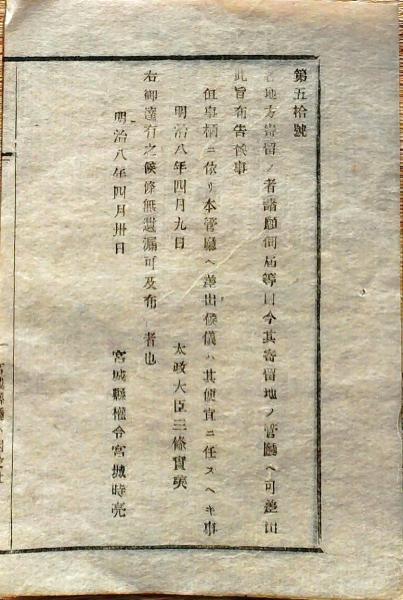 第五拾號
各地方寄留ノ者諸願伺屆等自今其寄留地ノ管廳ヘ可差出
此旨布告候事
但事柄ニ依リ本管廳ヘ差出候儀ハ其便宜ニ任スヘキ事
明治八年四月九日
太政大臣三條實美
右御達有之候條無遺漏可及布 者也
明治八年四月卅日
宮城縣權令宮城時亮